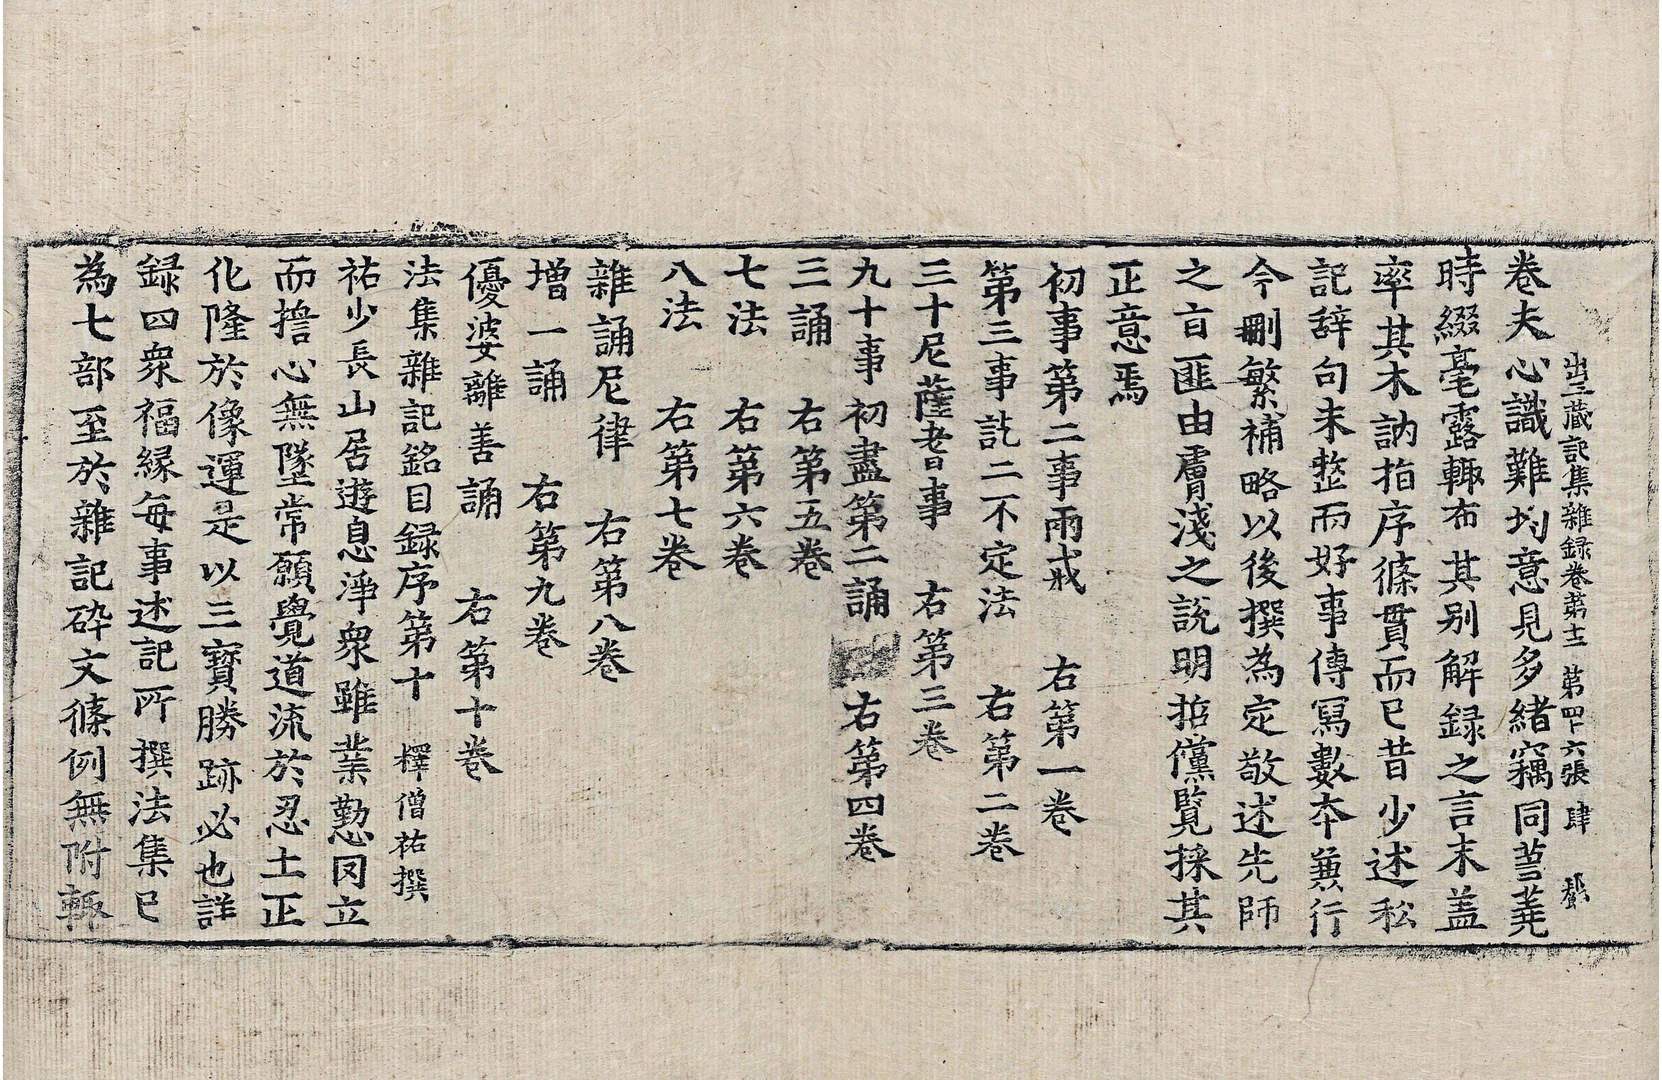 出三藏記集雜録卷第十二 第四十六張 肆
卷夫心識難均意見多緒竊同蒭蕘
時綴毫露輙布其别解録之言末盖
率其木訥指序條貫而已昔少述私
記辭句未整而好事傳寫數本兼行
今刪繁補略以後撰為定敬述先師
之旨匪由膚淺之説明哲儻覧採其
正意焉
初事第二事兩戒 右第一卷
第三事訖二不定法 右第二卷
三十尼薩耆事 右第三卷
九十事初盡第二誦 右第四卷
三誦 右第五卷
七法 右第六卷
八法 右第七卷
雜誦尼律 右第八卷
增一誦 右第九卷
優婆離善誦 右第十卷
法集雜記銘目録序第十 釋僧祐撰
祐少長山居遊息淨衆雖業勤罔立
而擔心無墜常願覺道流於忍土正
化隆於像運是以三寳勝跡必也詳
録四衆福縁每事述記所撰法集已
為七部至於雜記碎文條例無附輙